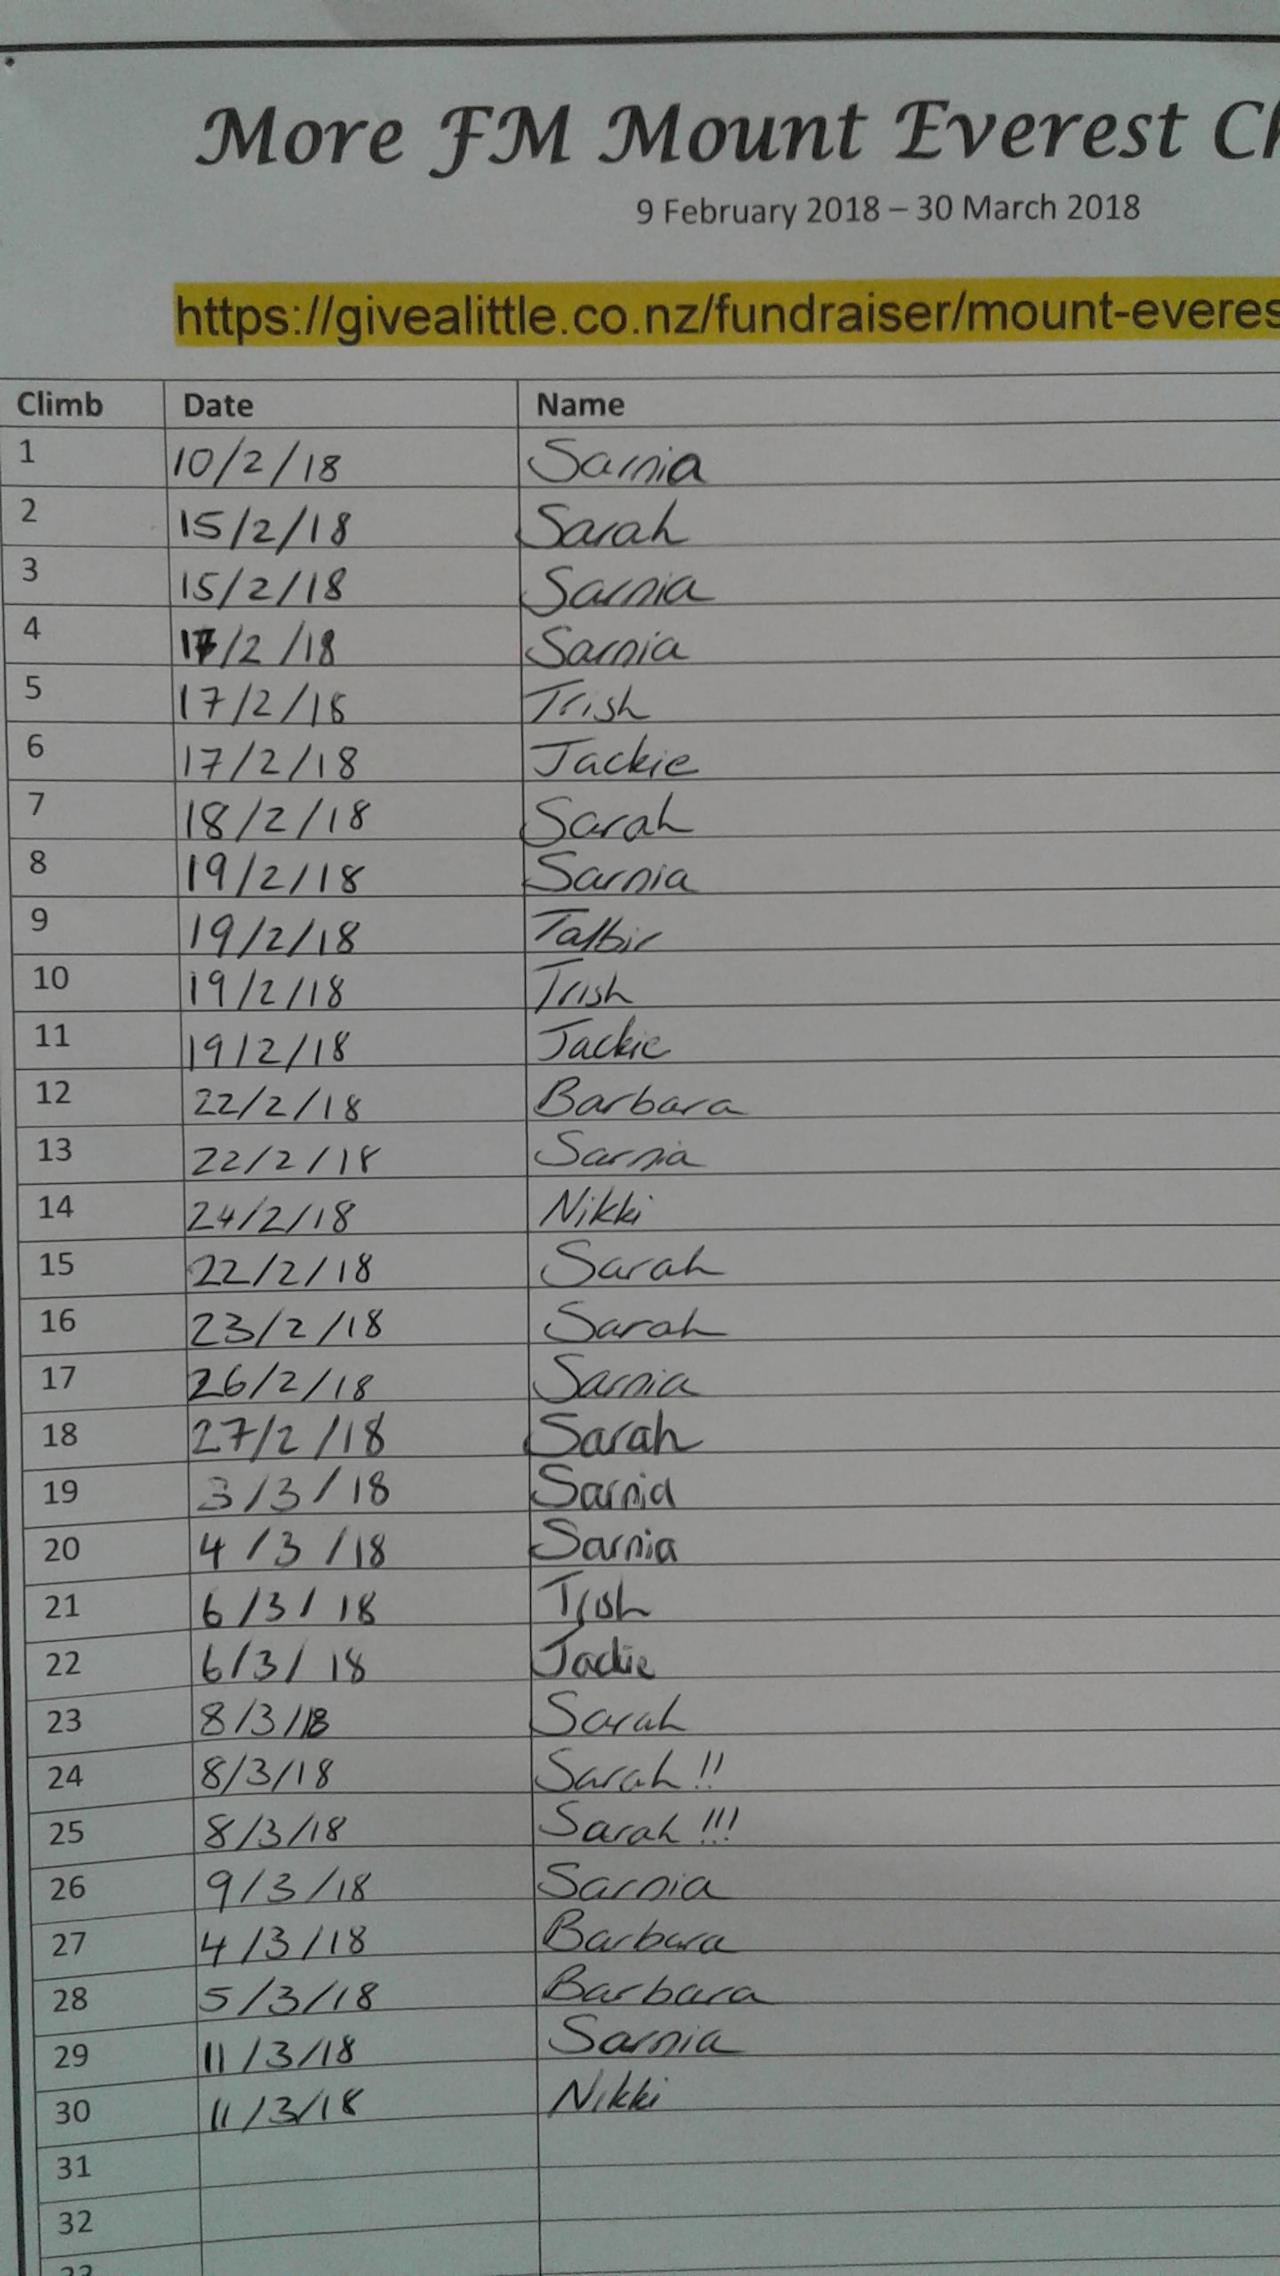 More FM Mount Everest Ch
9 February 2018 – 30 March 2018
https://givealittle.co.nz/fundraiser/mount-everes
Climb Date Name
1 10/2/18 Sarnia
2 15/2/18 Sarah
3 15/2/18 Sarnia
4 17/2/18 Sarnia
5 17/2/18 Trish
6 17/2/18 Jackie
7 18/2/18 Sarah
8 19/2/18 Sarnia
9 19/2/18 Talbir
10 19/2/18 Trish
11 19/2/18 Jackie
12 22/2/18 Barbara
13 22/2/18 Sarnia
14 24/2/18 Nikki
15 22/2/18 Sarah
16 23/2/18 Sarah
17 26/2/18 Sarnia
18 27/2/18 Sarah
19 3/3/18 Sarnia
20 4/3/18 Sarnia
21 6/3/18 Trish
22 6/3/18 Jackie
23 8/3/18 Sarah
24 8/3/18 Sarah !!
25 8/3/18 Sarah !!!
26 9/3/18 Sarnia
27 4/3/18 Barbara
28 5/3/18 Barbara
29 11/3/18 Sarnia
30 11/3/18 Nikki
31
32